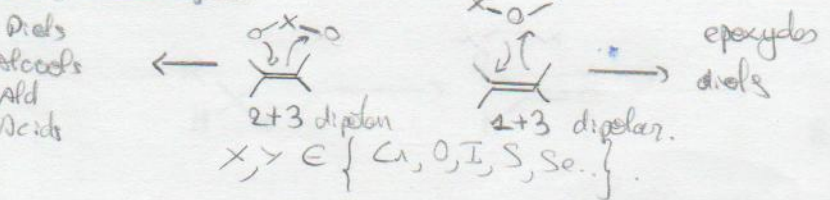 Diols
Alcools
Ald
Acids
O X O
X O
2+3 dipolar
1+3 dipolar.
epoxydes
diols
X, Y ∈ { Cr, O, I, S, Se.. } .